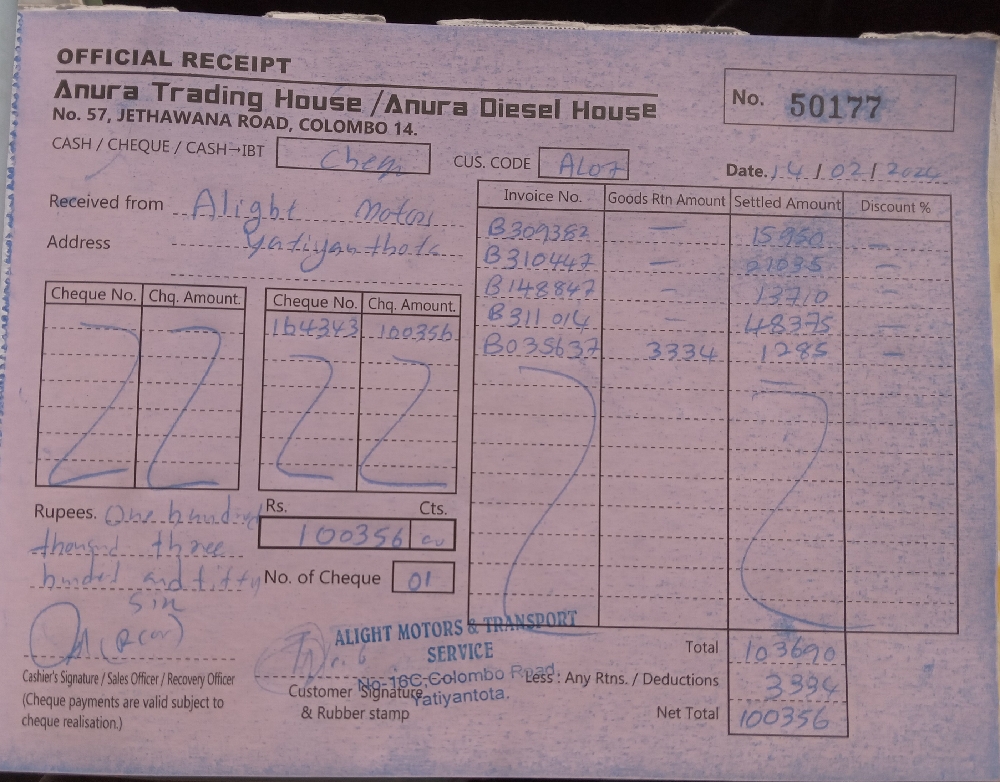 OFFICIAL RECEIPT
Anura Trading House /Anura Diesel House
No. 57, JETHAWANA ROAD, COLOMBO 14.
No. 50177
CASH / CHEQUE / CASH→IBT
CUS. CODE AL07
Date. 14 / 02 / 2024
Received from Alight Motors
Address Yatiyanthota
Invoice No. Goods Rtn Amount Settled Amount Discount %
B309382 — 15950 —
B310447 — —
B148847 — 13710
B311014 - 48375 —
B035637 3334 1285 —
Cheque No. Chq. Amount. Cheque No. Chq. Amount.
164343 100356
Rupees. One hundred
thousand three
hundred and fifty
six
Rs. Cts.
100356
No. of Cheque 01
ALIGHT MOTORS & TRANSPORT
SERVICE
No-16C, Colombo Road,
Yatiyantota.
Cashier's Signature / Sales Officer / Recovery Officer
(Cheque payments are valid subject to
cheque realisation.)
Customer Signature
& Rubber stamp
Total 103690
Less : Any Rtns. / Deductions 3334
Net Total 100356